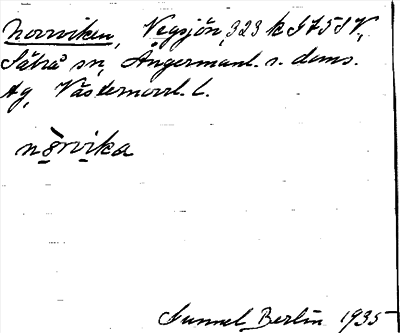 Norrviken, Vegsjön, 323 k I 75 S V,
Sätra sn, Ångermanl. s. doms.
Ag, Västernorrl. l.
nǫrvika
Sunnel Berlin 1935